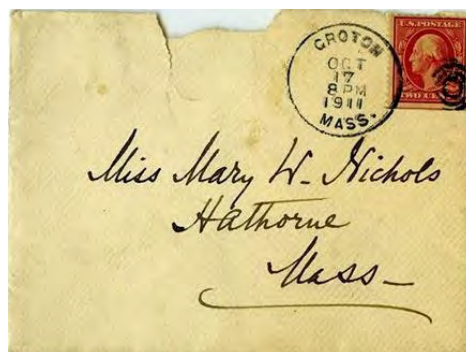 GROTON
OCT
17
8 PM
1911
MASS.
U.S. POSTAGE
TWO CE
Miss Mary W. Nichols
Hathorne
Mass